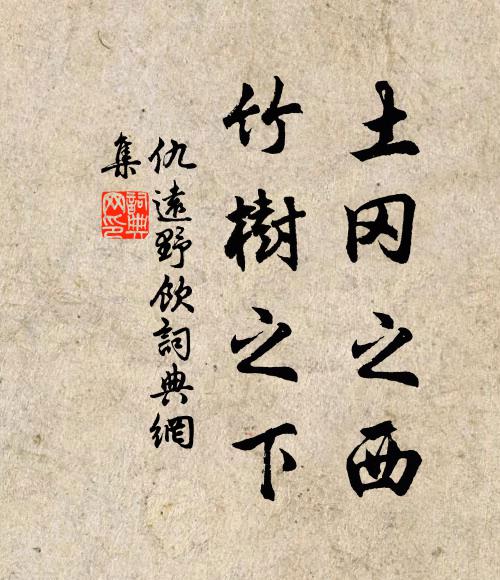 土冈之西
竹樹之下
仇遠野飲詞典網
集
詞典
网印